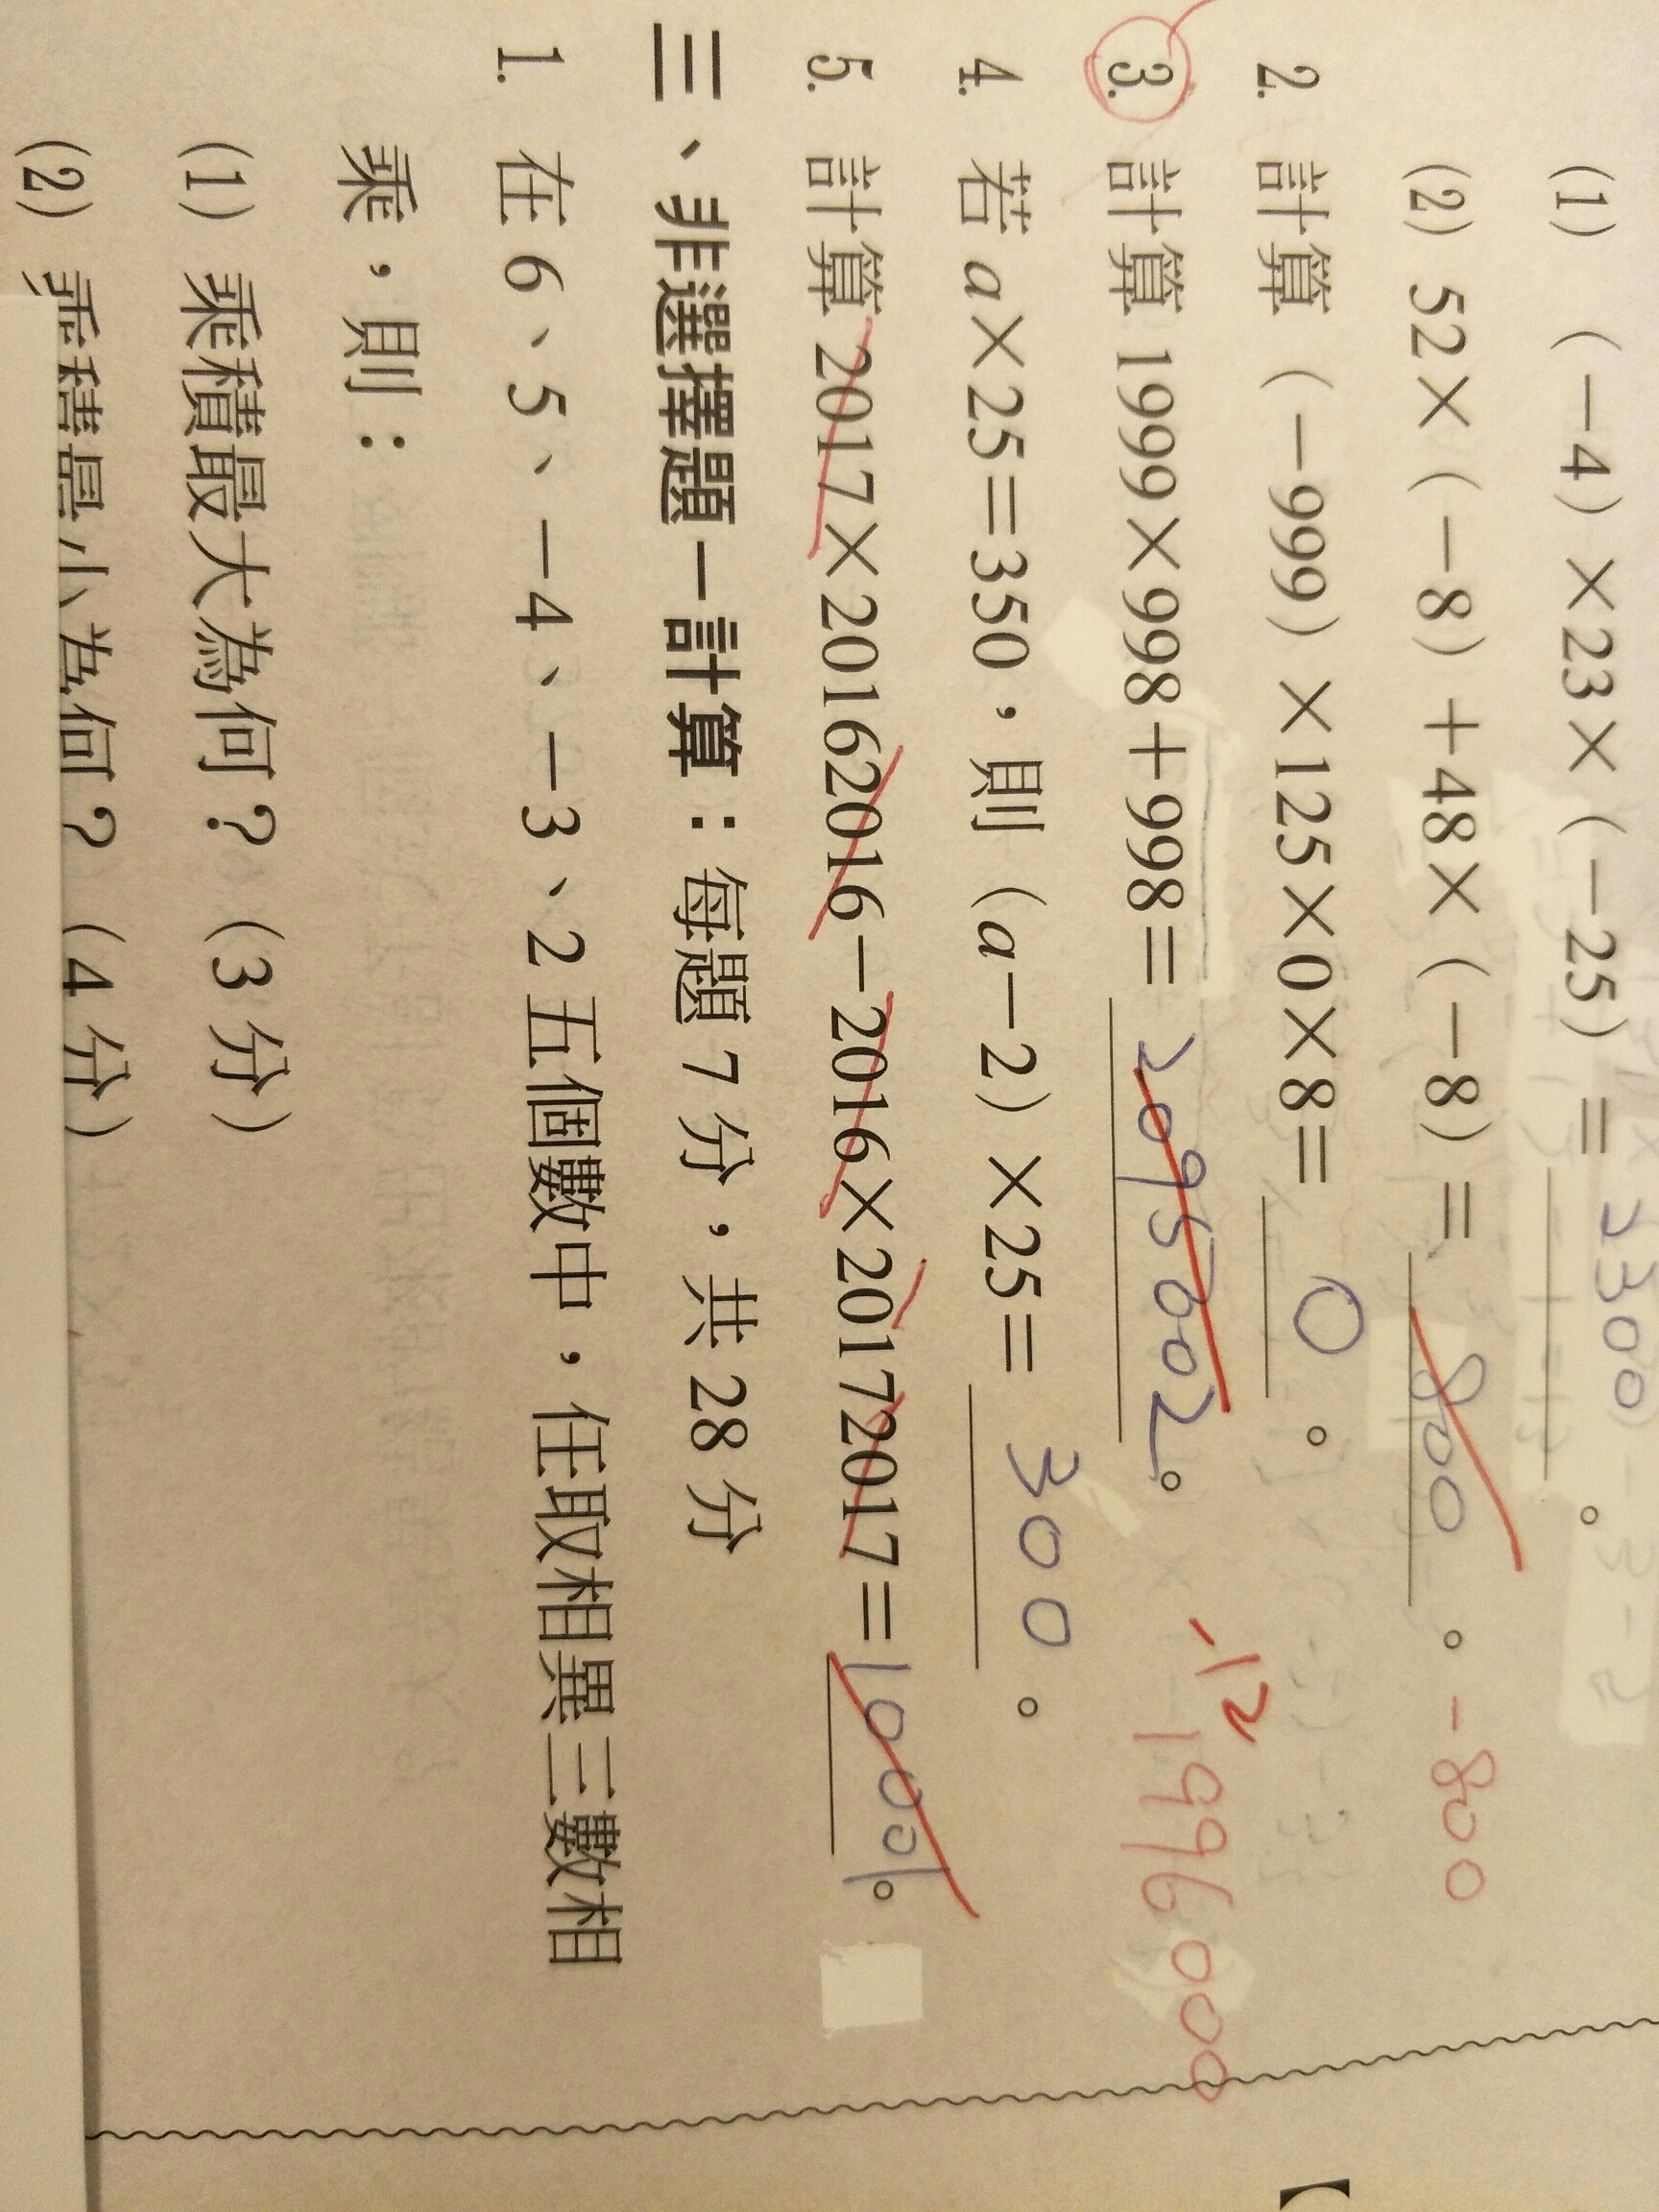 (1) (-4)×23×(-25)= 2300 。
(2) 52×(-8)+48×(-8)= 800 。 -800
2. 計算 (-999)×125×0×8= 0 。
3. 計算 1999×998+998= 2095002。 -12 1996000
4. 若 a×25=350，則 (a-2)×25= 300 。
5. 計算 2017×20162016-2016×20172017= 1001。
三、非選擇題－計算：每題 7 分，共 28 分
1. 在 6、5、-4、-3、2 五個數中，任取相異三數相
乘，則：
(1) 乘積最大為何？(3 分)
(2) 乘積最小為何？(4 分)
【